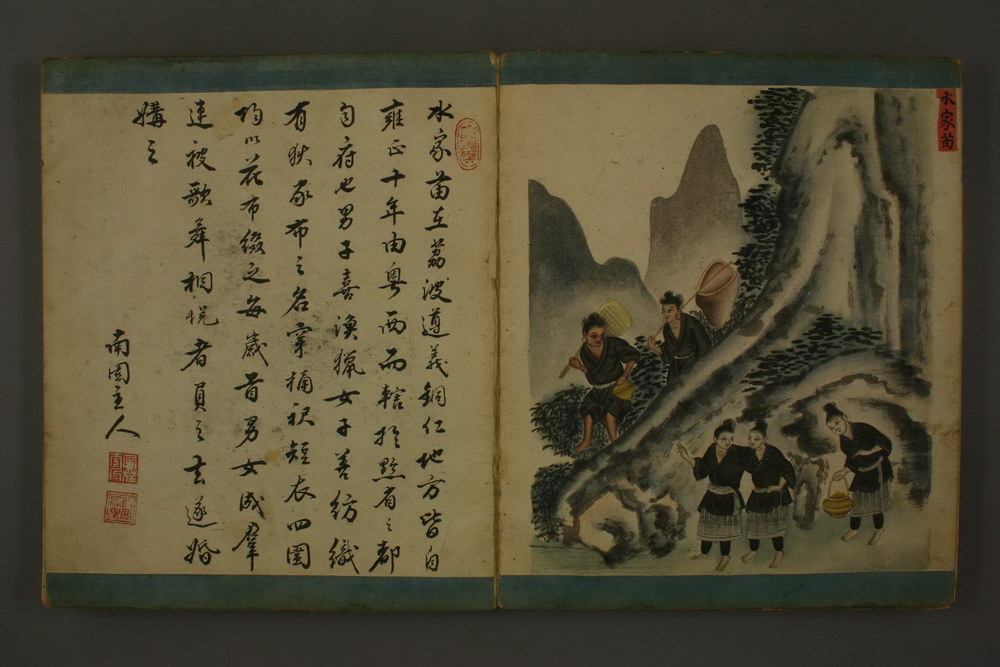 水家苗
水家苗在荔波遵義銅仁地方皆自
雍正十年由粤西而轄於黔省之都
勻府也男子喜漁獵女子善紡織
有狄家布之名穿桶裙短衣四圍
均以花布緞之每歲首男女成羣
連袂歌舞相悦者負之去遂婚
媾之
南園主人